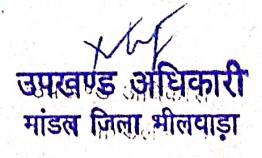 उपखण्ड अधिकारी
मांडल ज़िला भीलवाड़ा